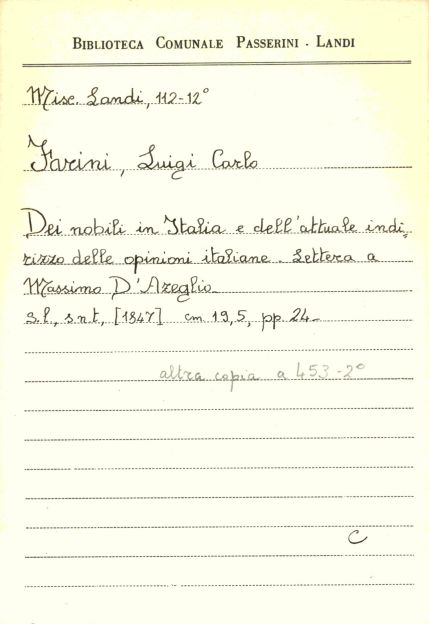 BIBLIOTECA COMUNALE PASSERINI - LANDI
Misc. Landi, 112-12°
Farini, Luigi Carlo
Dei nobili in Italia e dell'attuale indi,
rizzo delle opinioni italiane. Lettera a
Massimo D'Azeglio_
S.l., s.n.t., [1847] cm 19,5, pp. 24_
altra copia a 453-2°
C